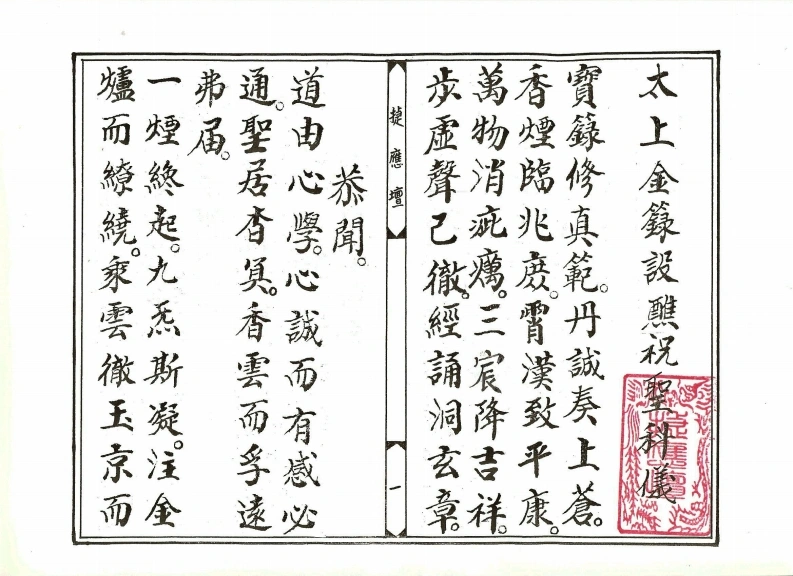 太上金籙設醮祝聖科儀
寶籙修真範。丹誠奏上蒼。
香煙臨兆庶。霄漢致平康。
萬物消疵癘。三宸降吉祥。
步虛聲已徹。經誦洞玄章。
捷應壇
一
恭聞。
道由心學。心誠而有感必
通。聖居杳冥。香雲而孚遠
弗届。
一煙終起。九炁斯凝。注金
爐而繚繞。乘雲徹玉京而